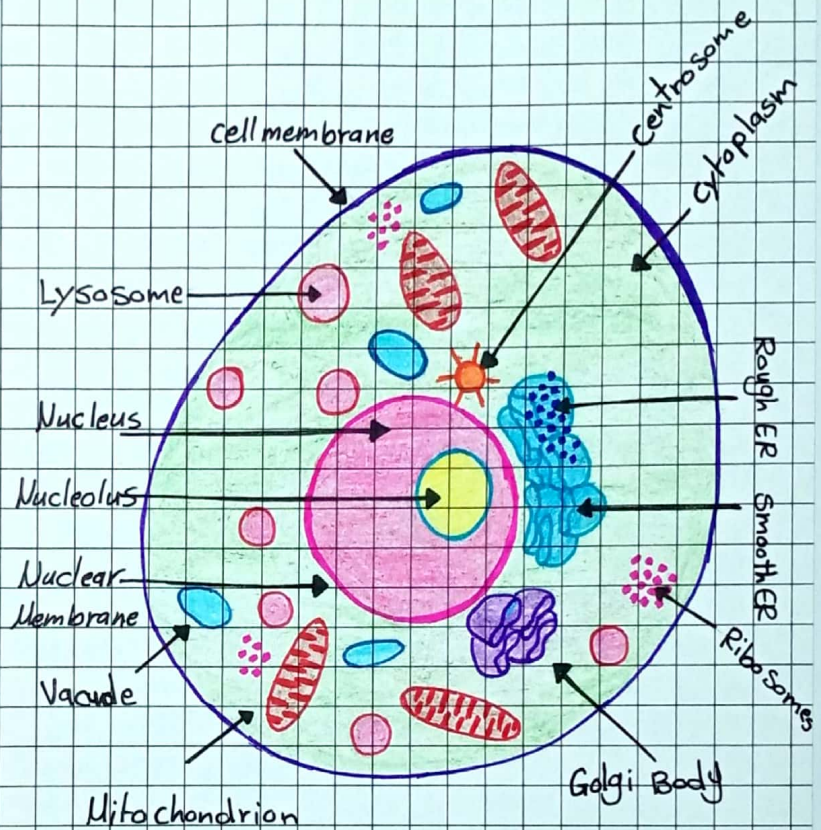 Centrosome
Cell membrane
Cytoplasm
Lysosome
Rough ER
Nucleus
Nucleolus
Smooth ER
Nuclear
Membrane
Ribosomes
Vacuole
Golgi Body
Mitochondrion